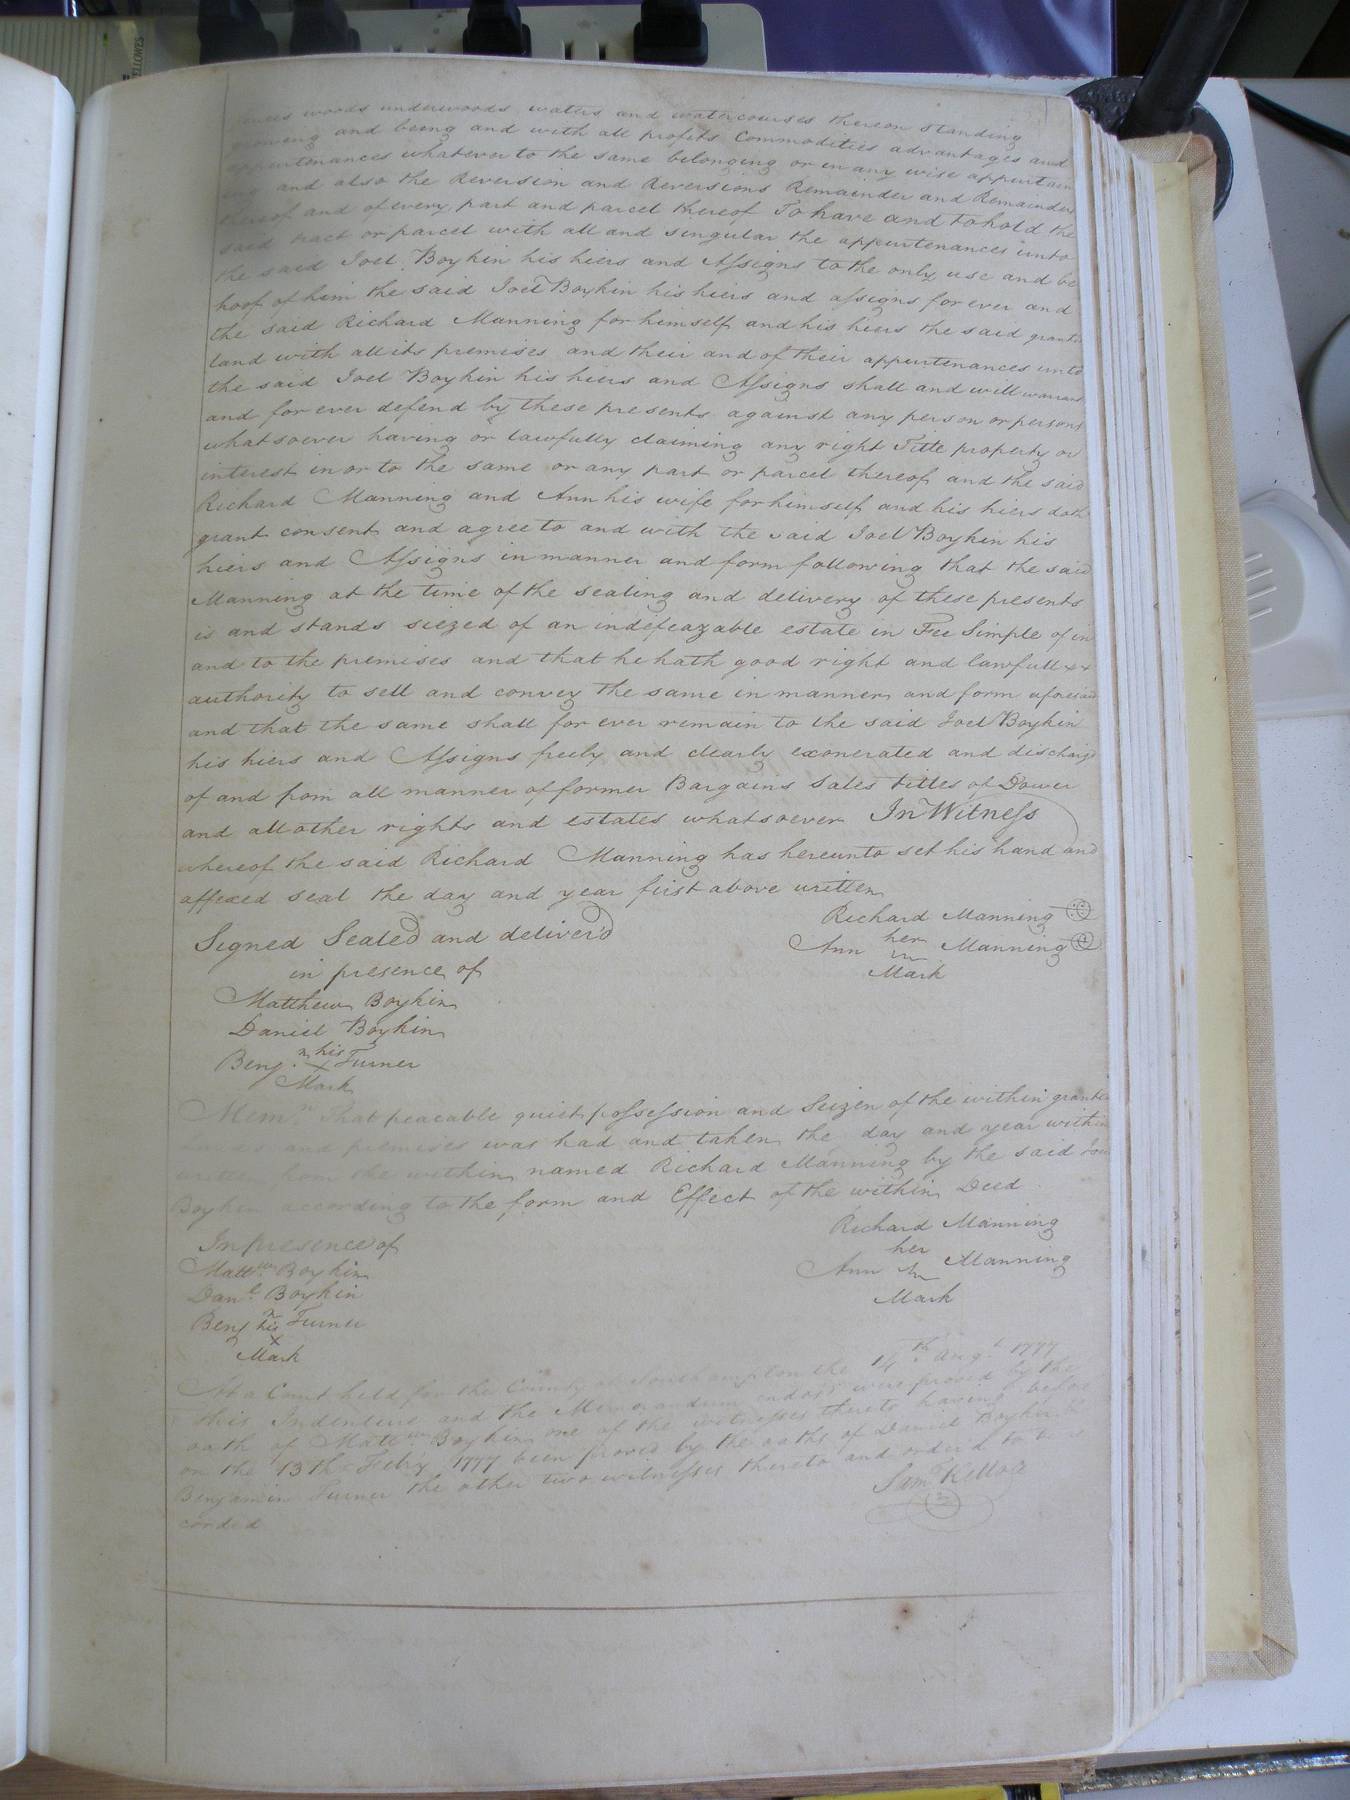 FELLOWES
woods underwoods waters and watercourses thereon standing
growing and being and with all profits Commodities advantages and
appurtenances whatever to the same belonging or in any wise appertain
ing and also the Reversion and Reversions Remainder and Remainders
thereof and of every part and parcel thereof To have and to hold the
said tract or parcel with all and singular the appurtenances unto
the said Joel Boykin his hiers and Assigns to the only use and be
hoof of him the said Joel Boykin his hiers and assigns for ever and
the said Richard Manning for himself and his hiers the said granted
land with all its premises and their and of their appurtenances unto
the said Joel Boykin his hiers and Assigns shall and will warrant
and for ever defend by these presents against any person or persons
whatsoever having or lawfully claiming any right Title property or
interest in or to the same or any part or parcel thereof and the said
Richard Manning and Ann his wife for himself and his hiers doth
grant consent and agree to and with the said Joel Boykin his
hiers and Assigns in manner and form following that the said
Manning at the time of the sealing and delivery of these presents
is and stands siezed of an indefeazable estate in Fee Simple of in
and to the premises and that he hath good right and lawfull xx
authority to sell and convey the same in manner and form aforesaid
and that the same shall for ever remain to the said Joel Boykin
his hiers and Assigns freely and clearly exonerated and discharg'd
of and from all manner of former Bargains Sales titles of Dower
and all other rights and estates whatsoever In Witness
whereof the said Richard Manning has hereunto set his hand and
affixed seal the day and year first above written
Richard Manning
Signed Sealed and deliver'd
Ann her Manning
Mark
in presence of
Matthew Boykin
Daniel Boykin
Benj.n his Turner
x
Mark
Mem.n That peacable quiet possession and Seizen of the within granted
and premises was had and taken the day and year within
written from the within named Richard Manning by the said Joel
Boykin according to the form and Effect of the within Deed
Richard Manning
her
Ann Manning
Mark
In presence of
Matt.w Boykin
Dan.l Boykin
Benj.n his Turner
x
Mark
At a Court held for the County of Southampton the 14.th Aug.t 1777
This Indenture and the Memorandum endors'd were proved by the
oath of Matt.w Boykin one of the witnesses thereto having before
on the 13th Feb.ry 1777 been proved by the oaths of Daniel Boykin &
Benjamin Turner the other two witnesses thereto and order'd to be re
corded
Sam.l Kello